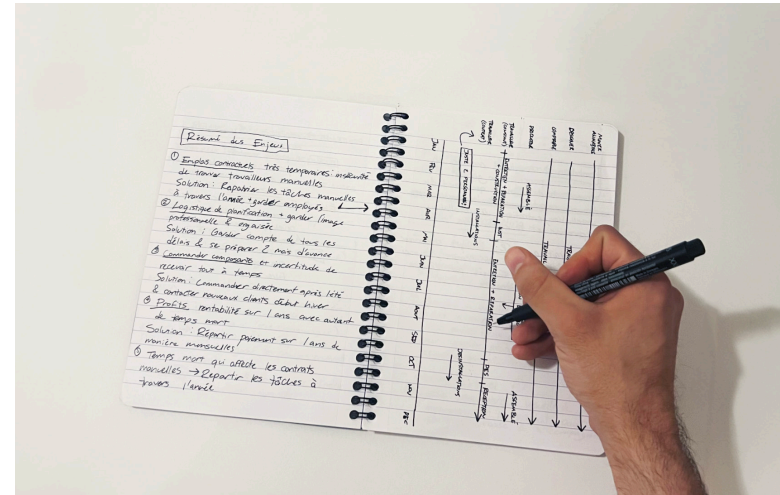 Résumé des Enjeux
① Emplois contractuels très temporaires: insécurité
de trouver travailleurs manuelles
Solution: Répartir les tâches manuelles
à travers l'année + garder employés
② Logistique de planification + garder l'image
professionnelle & organisée
Solution: Garder compte de tous les
délais & se préparer 2 mois d'avance
③ Commander composants et incertitude de
recevoir tout à temps
Solution: Commander directement après l'été
& contacter nouveaux clients début hiver
④ Profits rentabilité sur 1 ans avec autant
de temps mort
Solution: Répartir paiement sur 1 ans de
manière mensuelles
⑤ Temps mort qui affecte les contrats
manuelles → Répartir les tâches à
travers l'année
JAN
FEV
MAR
AVR
MAI
JUN
JUL
AOUT
SEP
OCT
NOV
DEC
INSTALLATIONS
DESINSTALLATIONS
ENTRETIEN + RÉPARATION
+ CONSTRUCTION
ENTRETIEN + RÉPARATION
DES
RECEPTION
ASSEMBLÉ
ASSEMBLÉ